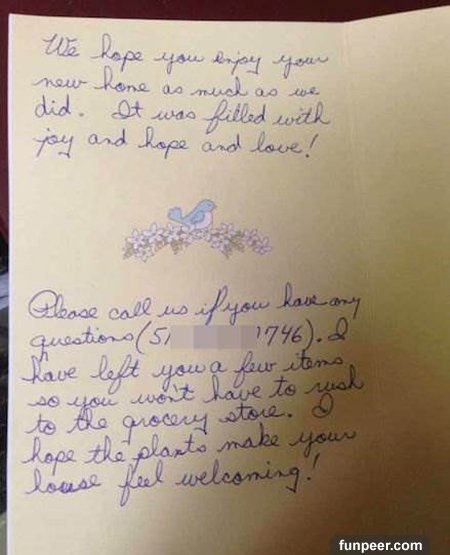 We hope you enjoy your
new home as much as we
did. It was filled with
joy and hope and love!
Please call us if you have any
questions (51 1746). I
have left you a few items
so you won't have to rush
to the grocery store. I
hope the plants make your
house feel welcoming!
funpeer.com